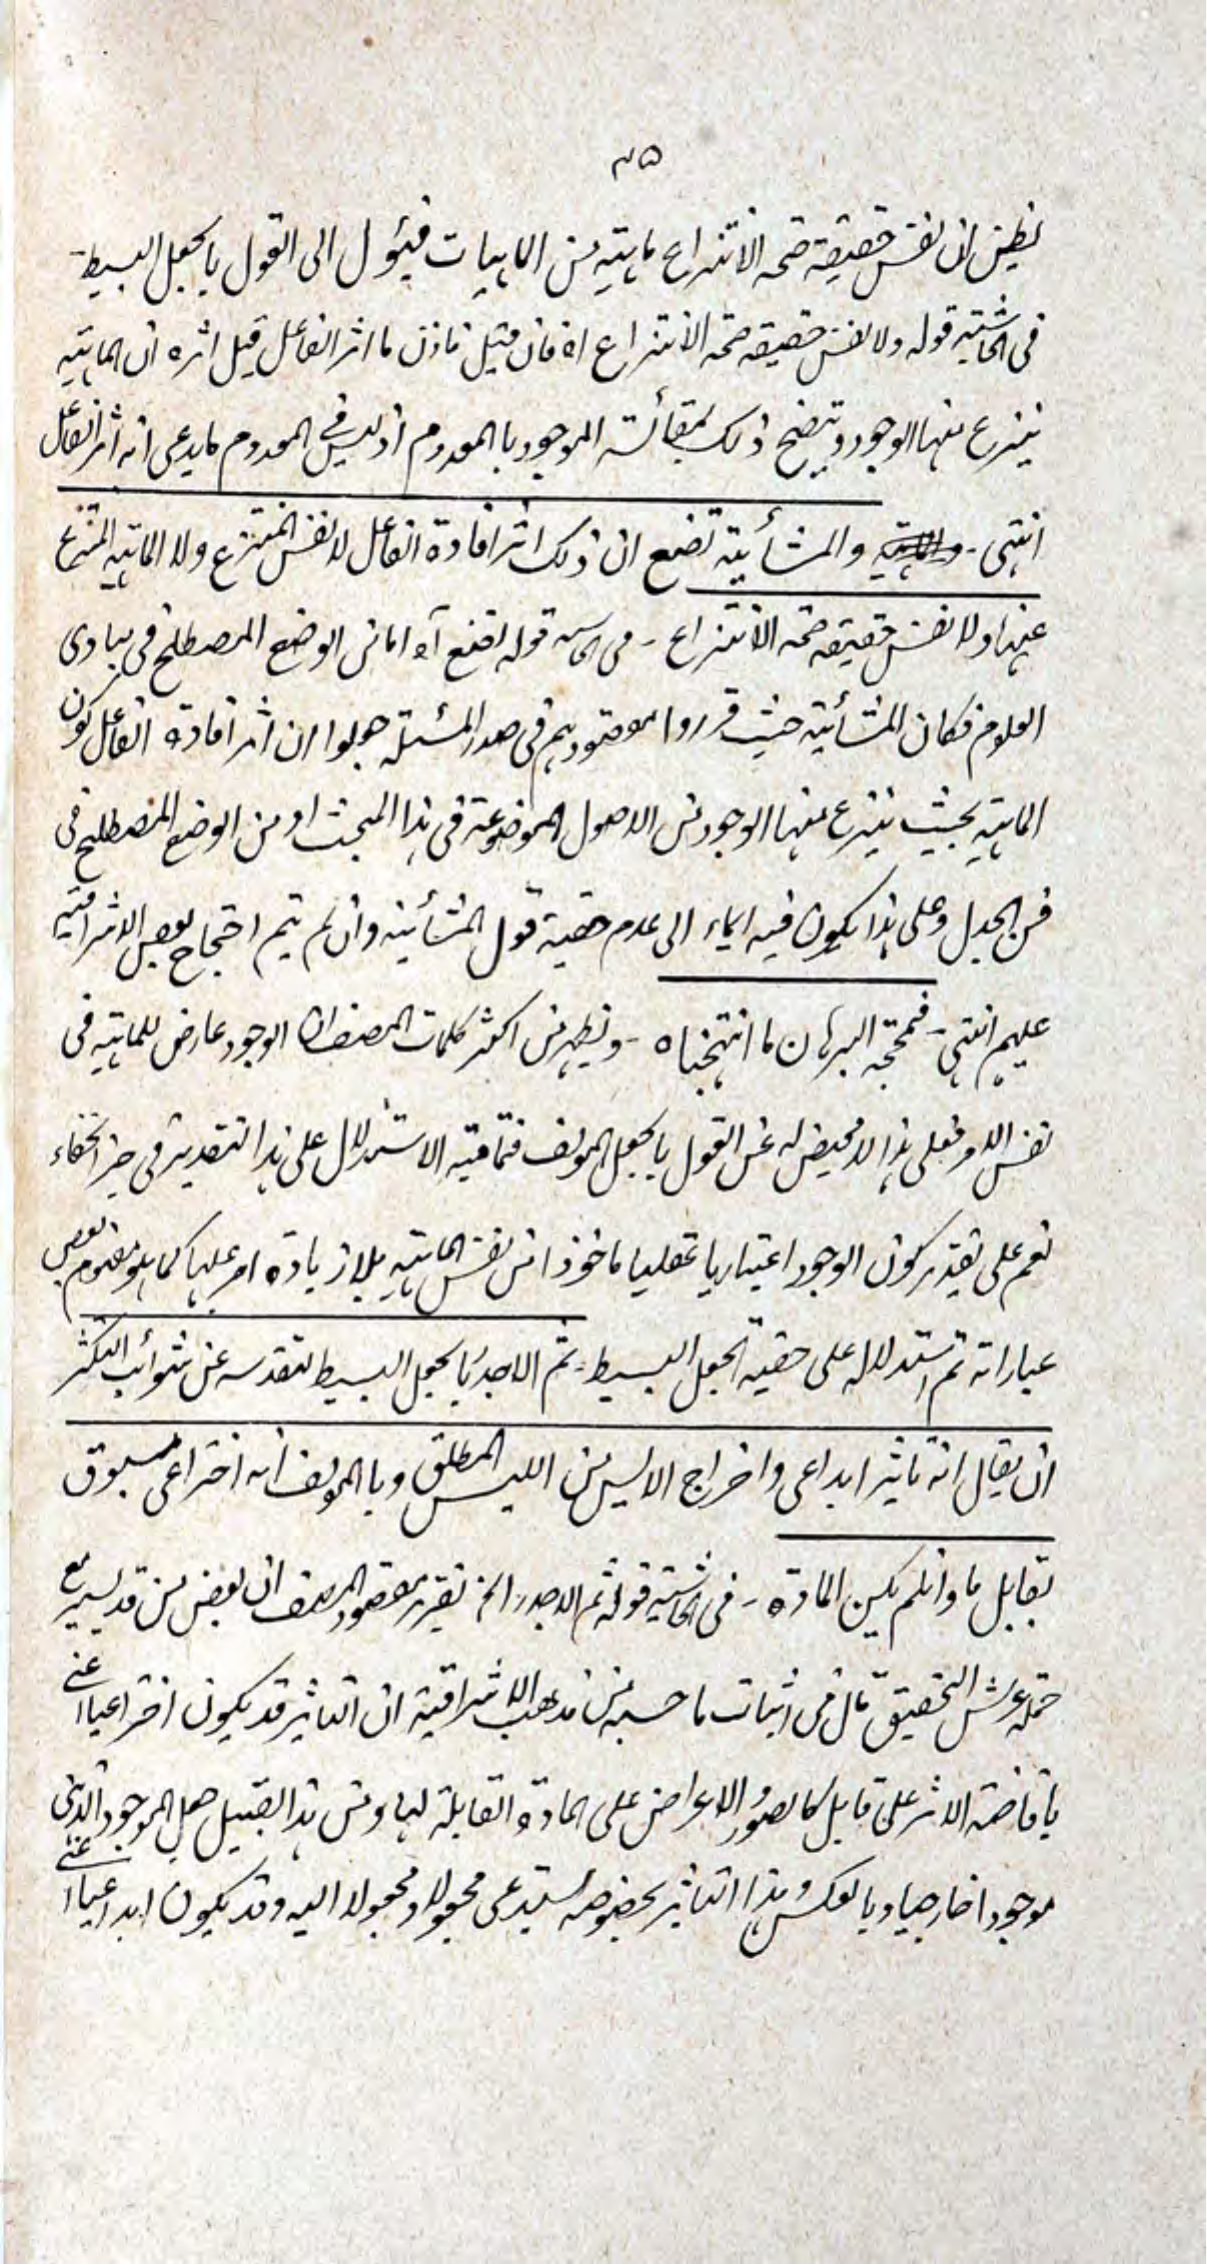 ٣٥
يظن ان نفس حقيقة صحة الانتزاع ماهية من الماهيات فيئول الى القول بالجعل البسيط
فى الحاشية قوله ولا نفس حقيقة صحة الانتزاع اه فان قيل فاذن ما اثر الفاعل قيل اثره ان الماهية
ينتزع منها الوجود ويتضح ذلك بمقائسة الموجود بالمعدوم اذ ليس فى المعدوم ما يدعى انه اثر الفاعل
انتهى - والمشائية تضع ان ذلك اثر افادة الفاعل لا نفس المنتزع ولا الماهية المنتزع
عنها ولا نفس حقيقة صحة الانتزاع - فى الحاشية قوله تضع آه اما من الوضع المصطلح فى مبادى
العلوم فكان المشائية حيث قرروا مقصودهم فى صدر المسئلة جعلوا ان اثر افادة الفاعل كون
الماهية بحيث ينتزع منها الوجود من الاصول الموضوعة فى هذا المبحث او من الوضع المصطلح فى
فن الجدل وعلى هذا يكون فيه ايماء الى عدم حقية قول المشائية وان لم يتم احتجاج بعض الاشراقية
عليهم انتهى - فمحجة البرهان ما انتهجناه - ويظهر من اكثر كلمات المصنف ان الوجود عارض للماهية فى
نفس الامر فعلى هذا لا محيص له عن القول بالجعل المؤلف فتمامية الاستدلال على هذا التقدير فى حيز الخفاء
نعم على تقدير كون الوجود اعتباريا تعقليا ماخوذا من نفس الماهية بلا زيادة امر عليها كما هو مفهوم بعض
عباراته تم استدلاله على حقية الجعل البسيط - ثم الاجدر بالجعل البسيط لتقدسه عن شوائب التكثر
ان يقال انه تاثير ابداعى واخراج الايس من الليس المطلق وبالمؤلف انه اختراعى مسبوق
بقابل ما وان لم يكن المادة - فى الحاشية قوله ثم الاجدر الخ تقرير مقصود المصنف ان بعض من قد يسير مع
حملة عرش التحقيق قال فى اثبات ما حسبه من مذهب الاشراقية ان التاثير قد يكون اختراعيا اعنى
بافاضة الاثر على قابل كالصور والاعراض على المادة القابلة لها ومن هذا القبيل جعل الموجود الذهنى
موجودا خارجيا وبالعكس وهذا التاثير بخصوصه يستدعى مجعولا ومجعولا اليه وقد يكون ابداعيا اعنى